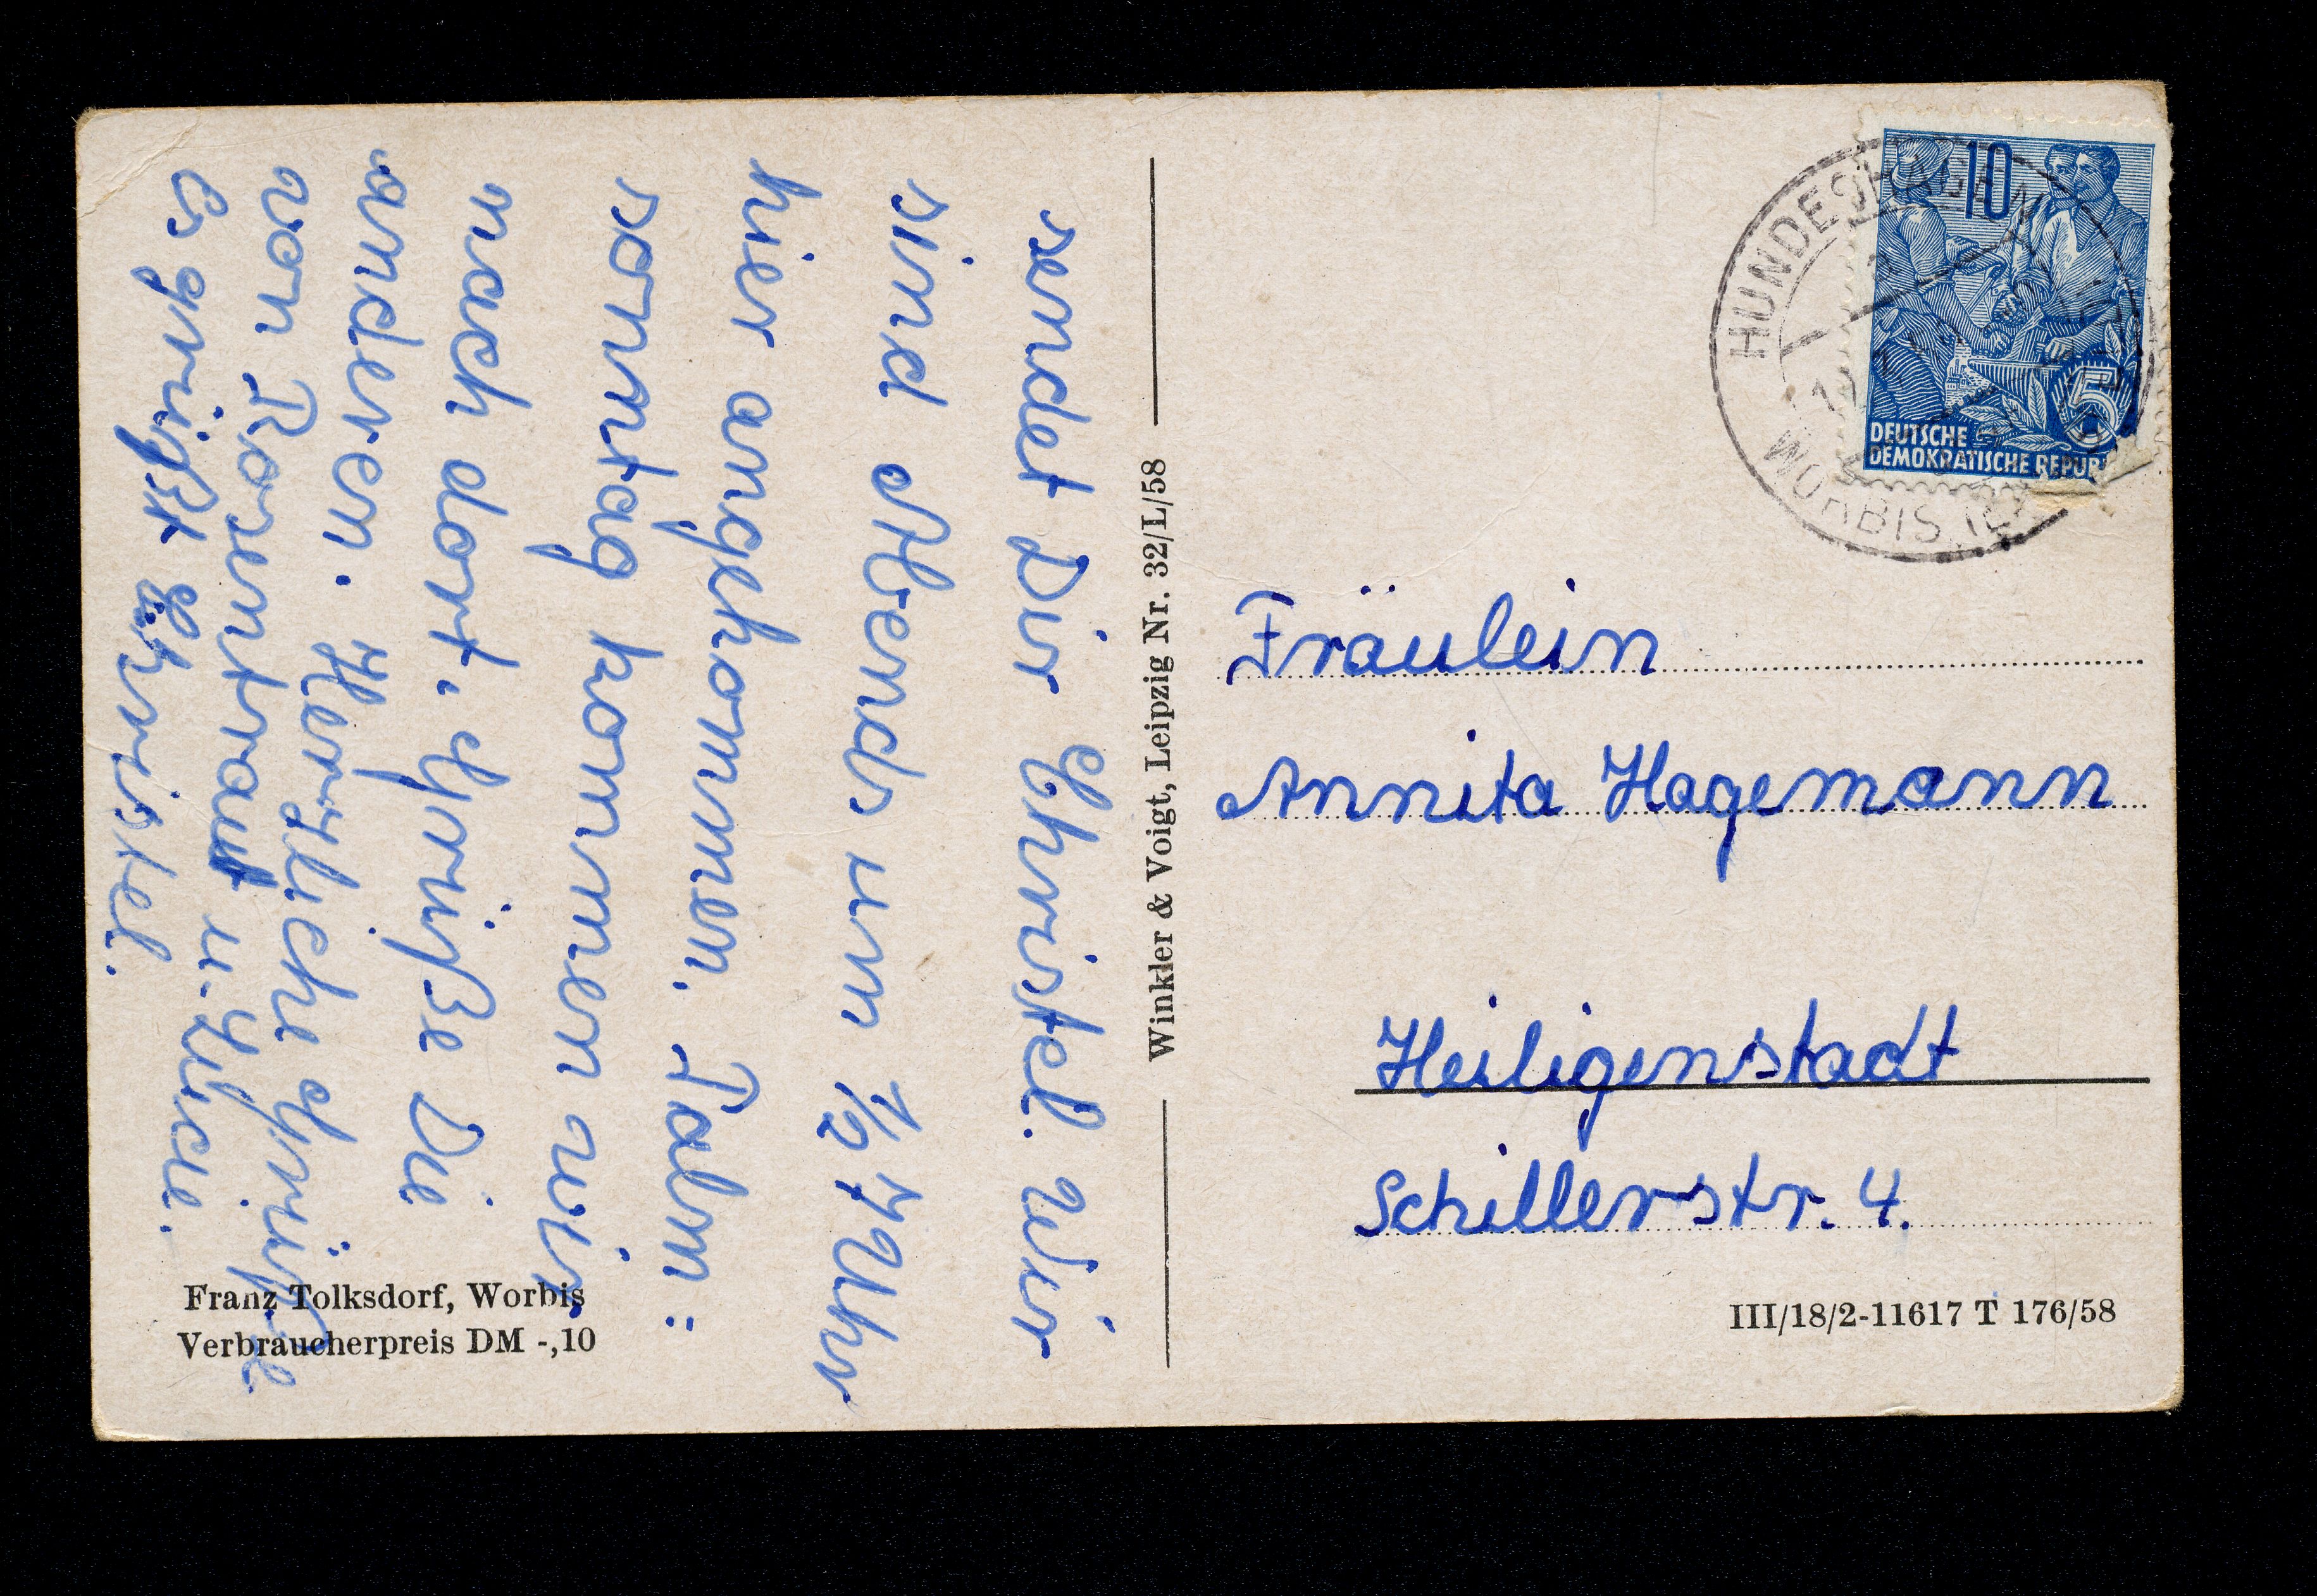 sendet Dir Christel. Wir
sind Abends um 1/2 7 Uhr
hier angekommen. Palm:
sonntag kommen wir
nach dort. Grüße Die
anderen. Herzliche Grüße
von Rosentraut u. Luzie.
Es grüßt Christel.
Franz Tolksdorf, Worbis
Verbraucherpreis DM -,10
Winkler & Voigt, Leipzig Nr. 32/L/58
10
5
DEUTSCHE
DEMOKRATISCHE REPUB
HUNDESHAGEN
WORBIS
Fräulein
Annita Hagemann
Heiligenstadt
Schillerstr. 4.
III/18/2-11617 T 176/58